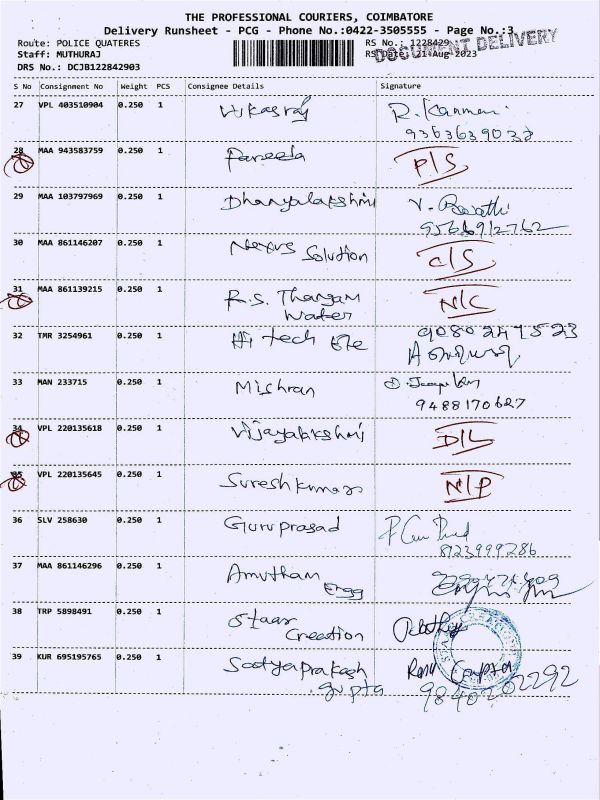 THE PROFESSIONAL COURIERS, COIMBATORE
Delivery Runsheet - PCG - Phone No.:0422-3505555 - Page No.:3
Route: POLICE QUATERES RS No.: 1228429
Staff: MUTHURAJ RS Date: 21-Aug-2023
DOCUMENT DELIVERY
DRS No.: DCJB122842903
S No Consignment No Weight PCS Consignee Details Signature
27 VPL 403510904 0.250 1 Vikasraj R. Kannan
9363639032
28 MAA 943583759 0.250 1 Pareeda P/S
29 MAA 103797969 0.250 1 Dhanyalakshmi V. Revathi
9566912762
30 MAA 861146207 0.250 1 Nexus Solution C/S
31 MAA 861139215 0.250 1 R.S. Thangam N/C
Water
32 TMR 3254961 0.250 1 Hi tech Ele 9080247523
33 MAN 233715 0.250 1 Mishran
9488170627
34 VPL 220135618 0.250 1 Vijayalakshmi D/L
35 VPL 220135645 0.250 1 Sureshkumar N/P
36 SLV 258630 0.250 1 Guruprasad
8123999286
37 MAA 861146296 0.250 1 Amutham
Engg
38 TRP 5898491 0.250 1 Staar
Creation
39 KUR 695195765 0.250 1 Sadtyaprakash Ravi Gupta
gupta 9840202292